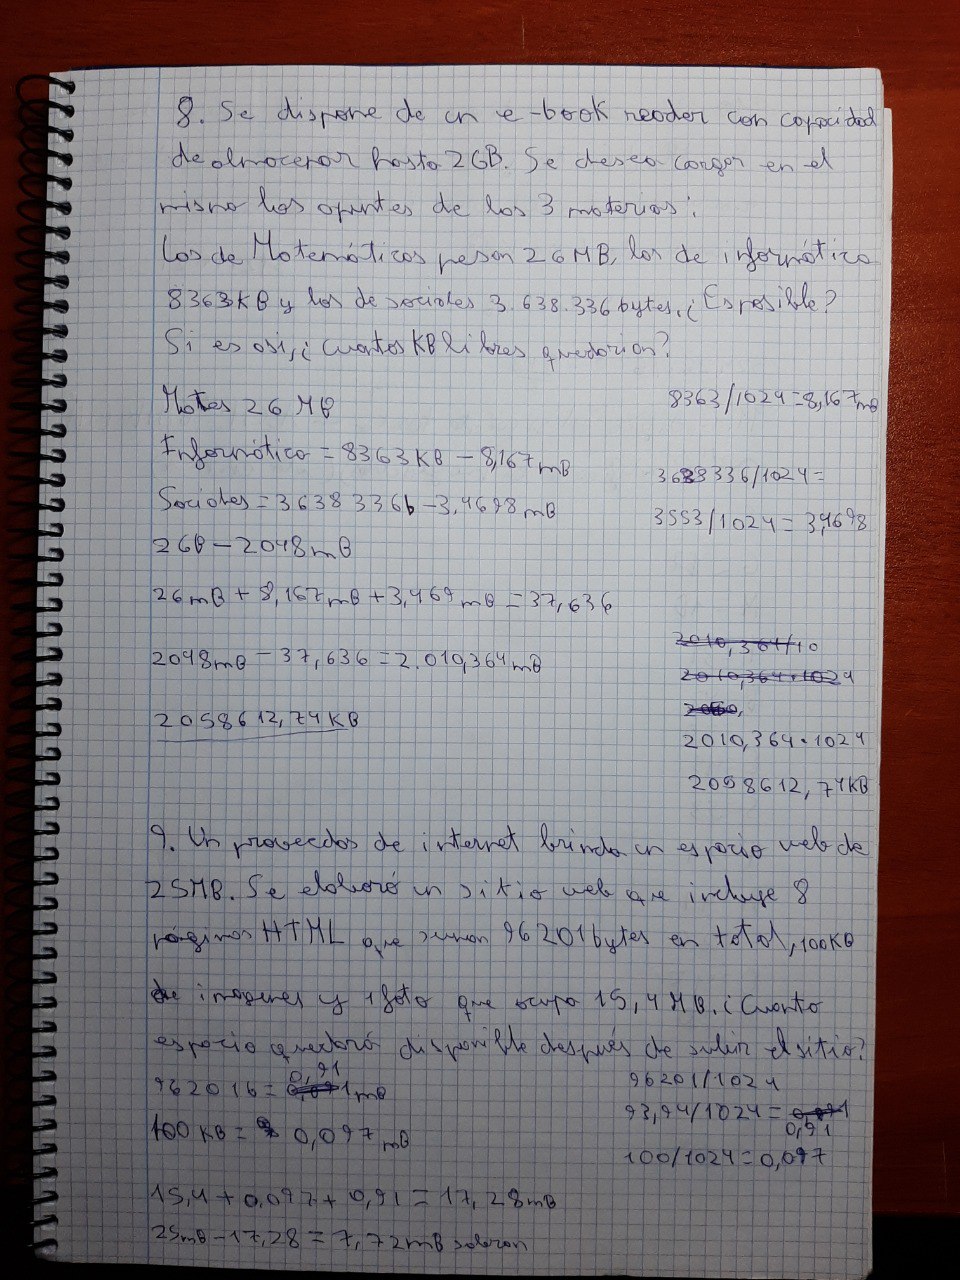 8. Se dispone de un e-book reader con capacidad
de almacenar hasta 2GB. Se desea cargar en el
mismo los apuntes de las 3 materias:
Los de Matemáticas pesan 26MB, los de informática
8363KB y los de sociales 3.638.336 bytes, ¿Es posible?
Si es asi, ¿Cuantos KB libres quedarian?
Mates 26 MB
8363/1024=8,167mB
Informática = 8363KB - 8,167mB
3638336/1024=
Sociales = 3638336b - 3,4698mB
3553/1024 = 3,4698
2GB - 2048mB
26mB + 8,167mB + 3,469mB = 37,636
2010,364/10
2048mB - 37,636 = 2.010,364mB
2010,364·1024
2058612,74KB
2010,364·1024
2058612,74KB
9. Un proveedor de internet brinda un espacio web de
25MB. Se elaboró un sitio web que incluye 8
páginas HTML que suman 96201bytes en total, 100KB
de imagenes y 1 foto que ocupa 15,4MB. ¿Cuanto
espacio quedará disponible después de subir el sitio?
0,91
96201/1024
96201b = 1mB
93,94/1024 =
0,91
100 KB = 0,097mB
100/1024=0,097
15,4 + 0,097 + 0,91 = 17,28mB
25mB - 17,28 = 7,72mB sobran